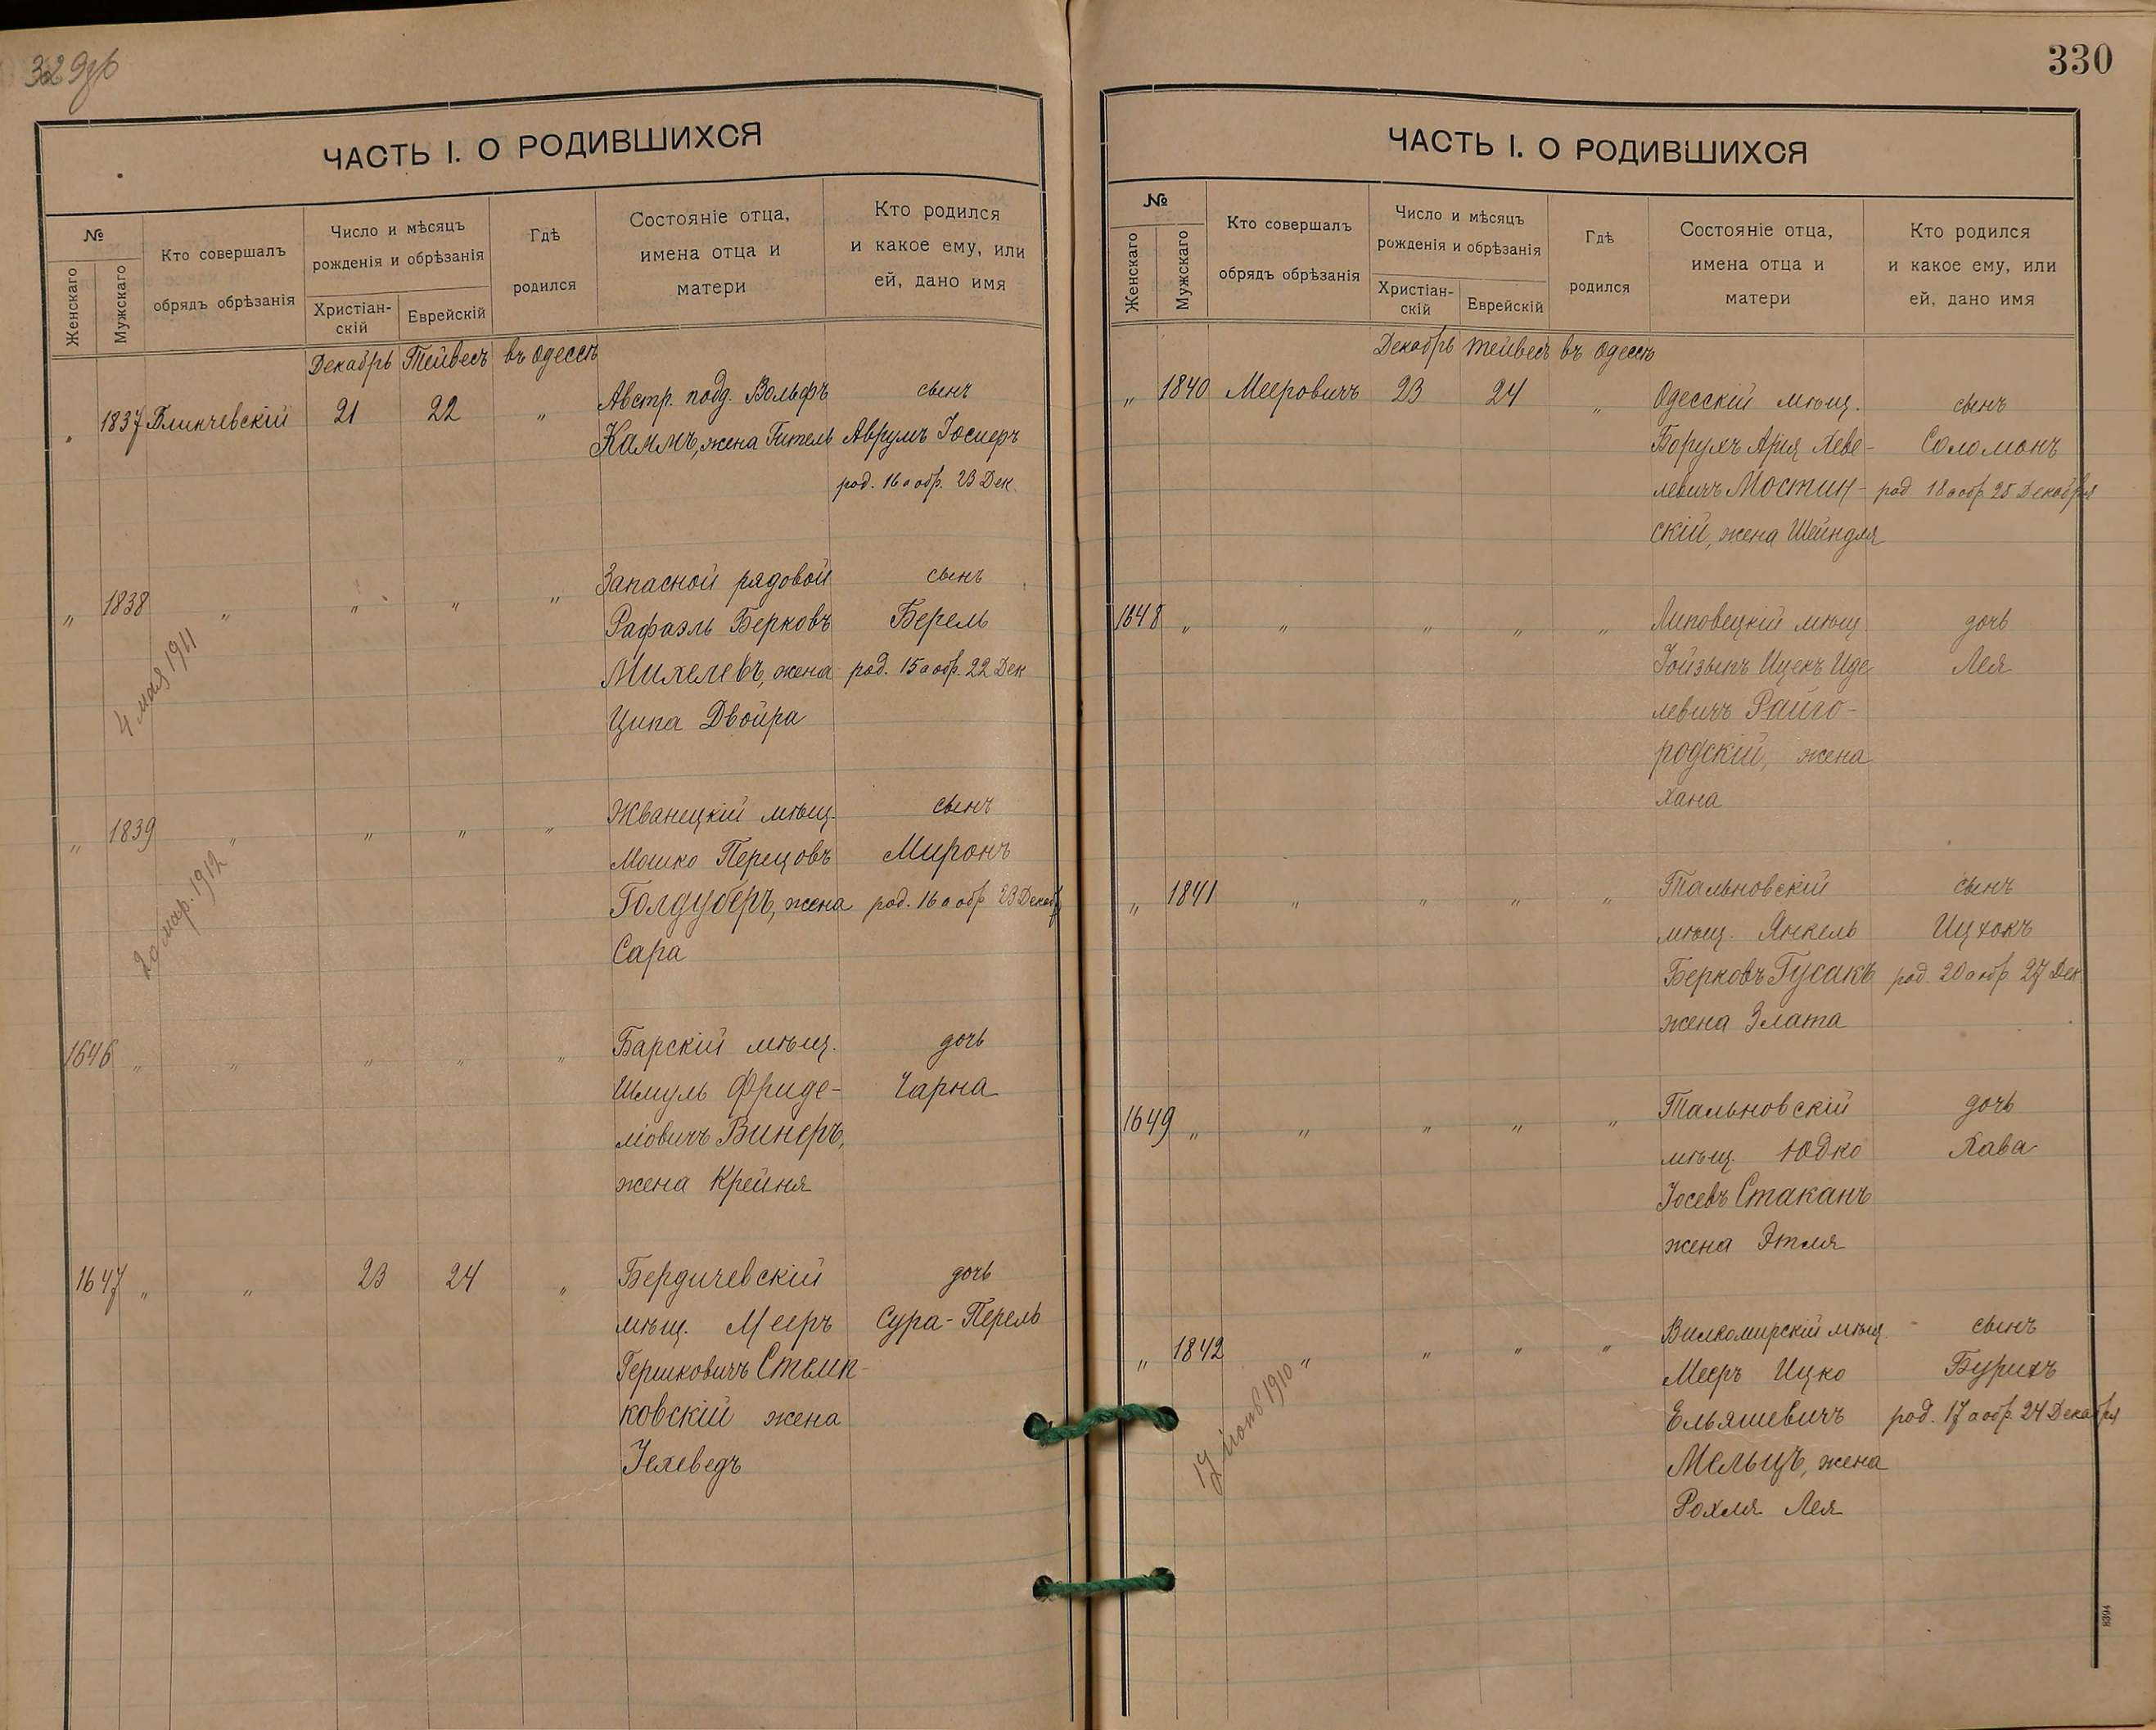 330
ЧАСТЬ I. О РОДИВШИХСЯ
№
Женскаго
Мужскаго
Кто совершалъ
обрядъ обрѣзанія
Число и мѣсяцъ
рожденія и обрѣзанія
Христіан-
скій
Еврейскій
Гдѣ
родился
Состояніе отца,
имена отца и
матери
Кто родился
и какое ему, или
ей, дано имя
Декабрь Тейвесъ въ Одессѣ
1837 21 22 „ Австр. подд. Вольфъ сынъ
Каммъ, жена Гитель Аврумъ
род. 16 а обр. 23 Дек.
„ 1838 „ „ „ „ Запасной рядовой сынъ
Рафаэль Берковъ Берель
Михелевъ, жена род. 15 а обр. 22 Дек
Ципа Двойра
4 мая 1911
„ 1839 „ „ „ „ Жванецкій мѣщ. сынъ
Мошко Перецовъ Миронъ
Голдуберъ, жена род. 16 а обр. 23 Декабр
Сара
20 мар. 1912
1646 „ „ „ „ „ Барскій мѣщ. дочь
Шмуль Фриде- Чарна
Винеръ,
жена Крейня
1647 „ „ 23 24 „ Бердичевскій дочь
мѣщ. Мееръ Сура-Перель
Гершковичъ
ковскій жена
ЧАСТЬ I. О РОДИВШИХСЯ
№
Женскаго
Мужскаго
Кто совершалъ
обрядъ обрѣзанія
Число и мѣсяцъ
рожденія и обрѣзанія
Христіан-
скій
Еврейскій
Гдѣ
родился
Состояніе отца,
имена отца и
матери
Кто родился
и какое ему, или
ей, дано имя
Декабрь Тейвесъ въ Одессѣ
„ 1840 Мееровичъ 23 24 „ Одесскій мѣщ. сынъ
Борухъ Арія Хеве- Соломонъ
левичъ Мостин- род. 18 а обр. 25 Декабря
скій, жена Шейндля
1648 „ „ „ „ „ Липовецкій мѣщ. дочь
Ицекъ Иде Лея
левичъ Райго-
родскій, жена
Хана
„ 1841 „ „ „ „ Тальновскій сынъ
мѣщ. Янкель Ицхокъ
Берковъ Гусакъ род. 20 а обр. 27 Дек
жена Злата
1649 „ „ „ „ „ Тальновскій дочь
мѣщ. Юдко Хава
Іосевъ Стаканъ
жена Этля
„ 1842 „ „ „ „ Вилкомирскій мѣщ. сынъ
Мееръ Ицко Бурихъ
Ельяшевичъ род. 17 а обр. 24 Декабря
Мельцъ, жена
Рохля Лея
17 1910
8394